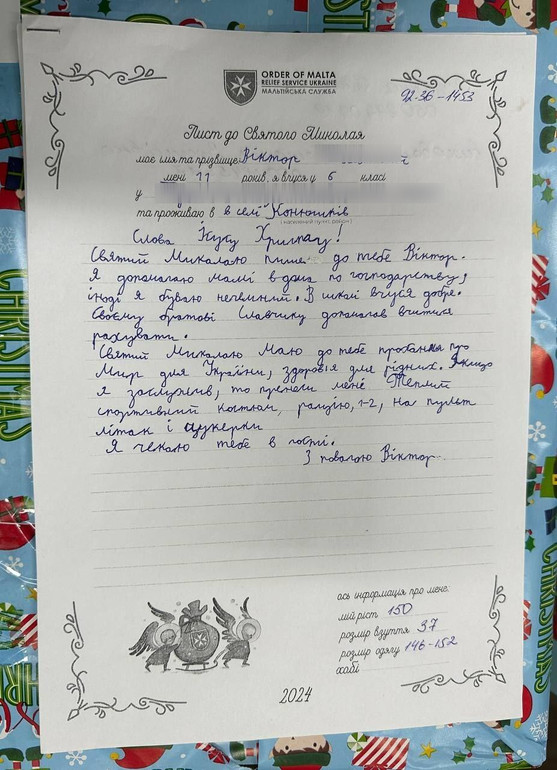 ORDER OF MALTA
RELIEF SERVICE UKRAINE
МАЛЬТІЙСЬКА СЛУЖБА
92-36-1453
Лист до Святого Миколая
моє імя та прізвище Віктор
мені 11 років, я вчуся у 6 класі
у
та проживаю в в селі Конюшків
(населений пункт, район)
Слова Ісусу Христу!
Святий Миколаю пише до тебе Віктор.
Я допомагаю мамі в дома по господарству,
іноді я буваю нечемний. В школі вчуся добре.
Своєму братові Славчику допомагав вчитися
рахувати.
Святий Миколаю Маю до тебе прохання про
Мир для України, здоровя для рідних. Якщо
я заслужив, то принеси мені Теплий
спортивний костюм, рацію, 1-2, на пульт
літак і цукерки
Я чекаю тебе в гості.
З повагою Віктор.
ось інформація про мене:
мій ріст 150
розмір взуття 37
розмір одягу 146-152
хобі
2024
CHRISTMAS
CHRISTMAS